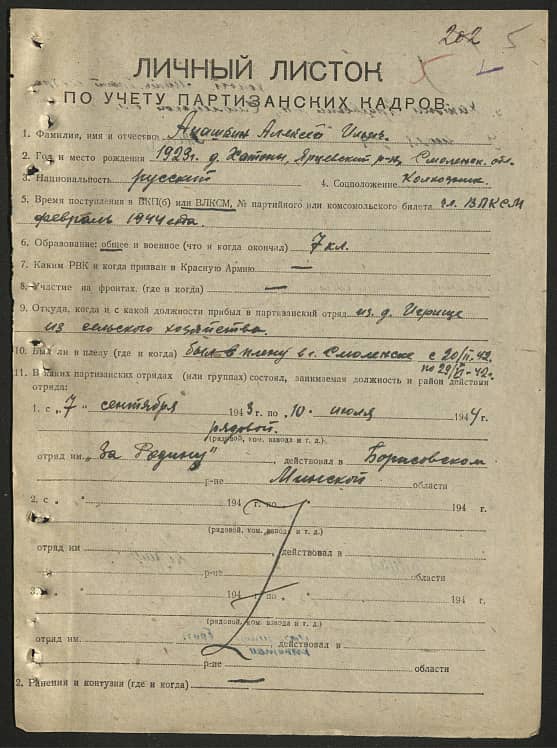 202 5
ЛИЧНЫЙ ЛИСТОК
ПО УЧЕТУ ПАРТИЗАНСКИХ КАДРОВ
1. Фамилия, имя и отчество Алексей Ильич
2. Год и место рождения 1923 г. д. Хатони, Ярцевский р-н, Смоленск. обл.
3. Национальность русский 4. Соцположение колхозник.
5. Время поступления в ВКП(б) или ВЛКСМ, № партийного или комсомольского билета чл. ВЛКСМ
февраль 1944 года.
6. Образование: общее и военное (что и когда окончил) 7 кл.
7. Каким РВК и когда призван в Красную Армию —
8. Участие на фронтах. (где и когда) —
9. Откуда, когда и с какой должности прибыл в партизанский отряд из д.
из сельского хозяйства.
10. Был ли в плену (где и когда) был в плену в г. Смоленске с 20/II.42.
по 29/
11. В каких партизанских отрядах (или группах) состоял, занимаемая должность и район действия
отряда:
1. с „7" сентября 1943 г. по 10 июля 1944 г.
рядовой.
(рядовой, ком. взвода и т. д.)
отряд им. „За Родину", действовал в Борисовском
р-не Минской области
2. с „ " 194 г. по 194 г.
(рядовой, ком. взвода и т. д.)
отряд им. , действовал в
р-не области
3. 194 г. по 194 г.
(рядовой, ком. взвода и т. д.)
отряд им. , действовал в
р-не области
2. Ранения и контузии (где и когда) —